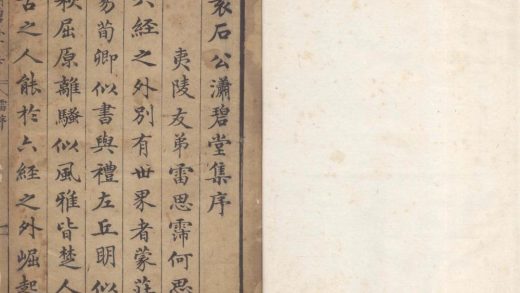 袁石公瀟碧堂集序
夷陵友弟雷思霈何思
六經之外別有世界者蒙莊
易荀卿似書與禮左丘明似
秋屈原離騷似風雅皆楚人
古之人能於六經之外崛起